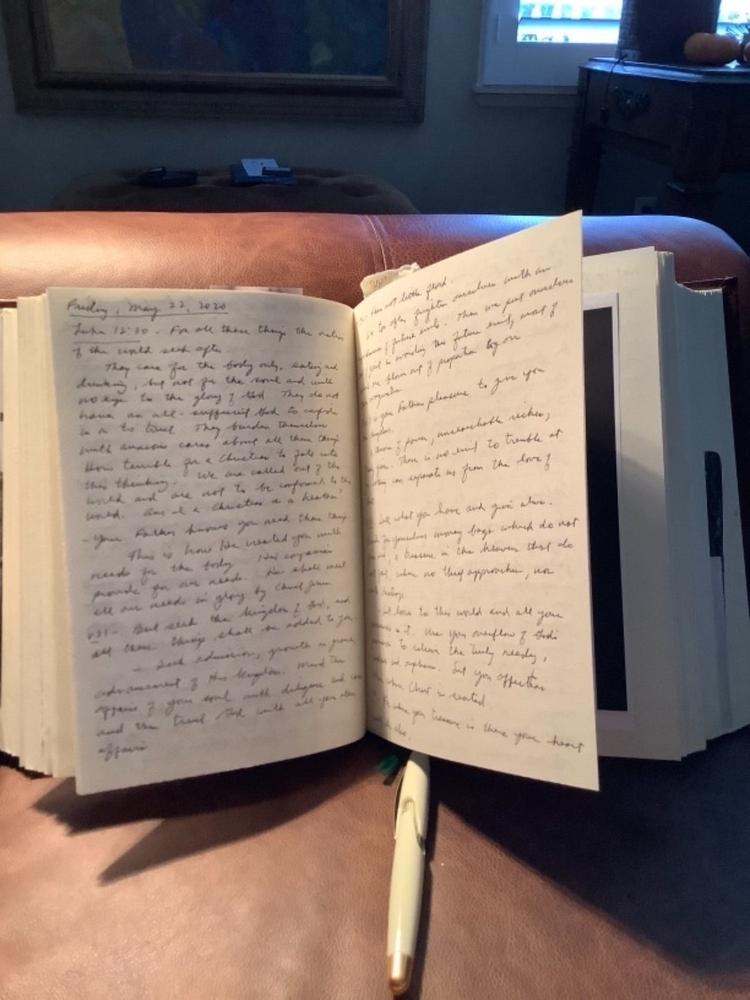 Friday, May 22, 2020
Luke 12:30 - For all these things the nations
of the world seek after
They care for the body only, eating and
drinking, but not for the soul and with
no eye to the glory of God They do not
have an all-sufficient God to
in or to trust. They burden themselves
with anxious cares about all these things
How terrible for a Christian to fall into
this thinking. We are called out of the
world and are not to be conformed to the
world. a Christian is a heathen?
- your Father knows you need these things
This is how He created you with
needs for the body. His
provide for our needs. He shall meet
all our needs in glory by Christ Jesus
v31 - But seek the kingdom of God, and
all these things shall be added to you.
- Seek admission, growth in grace,
advancement of His kingdom. Mind the
affairs of your soul with diligence and care
and then trust God with all your other
affairs
Fear not little flock.
We too often frighten ourselves with an
of future evils. Then we put ourselves
in avoiding this future evil, most of
are blown out of proportion by our
your Father's pleasure to give you
kingdom.
of power, unsearchable riches,
There is no need to tremble at
can separate us from the love of
Sell what you have and give alms.
yourselves money bags which do not
a treasure in the heaven that do
not fail, where no thief approaches, nor
moth destroys.
loose to this world and all your
in it. Use your overflow of God's
to relieve the truly needy,
and orphans. Set your affection
where Christ is seated.
where your treasure is there your heart
also.